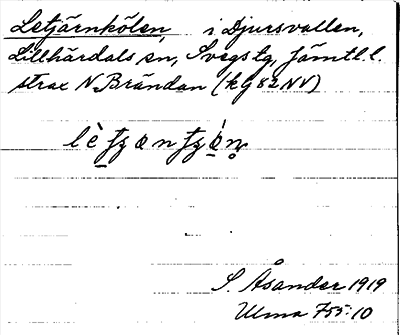 Letjärnkölen, i Djursvallen,
Lillhärdals sn, Svegs tg, Jämtl. l.
strax N Brändan (kg 62 NV)
S. Åsander 1919
Ulma 755:10